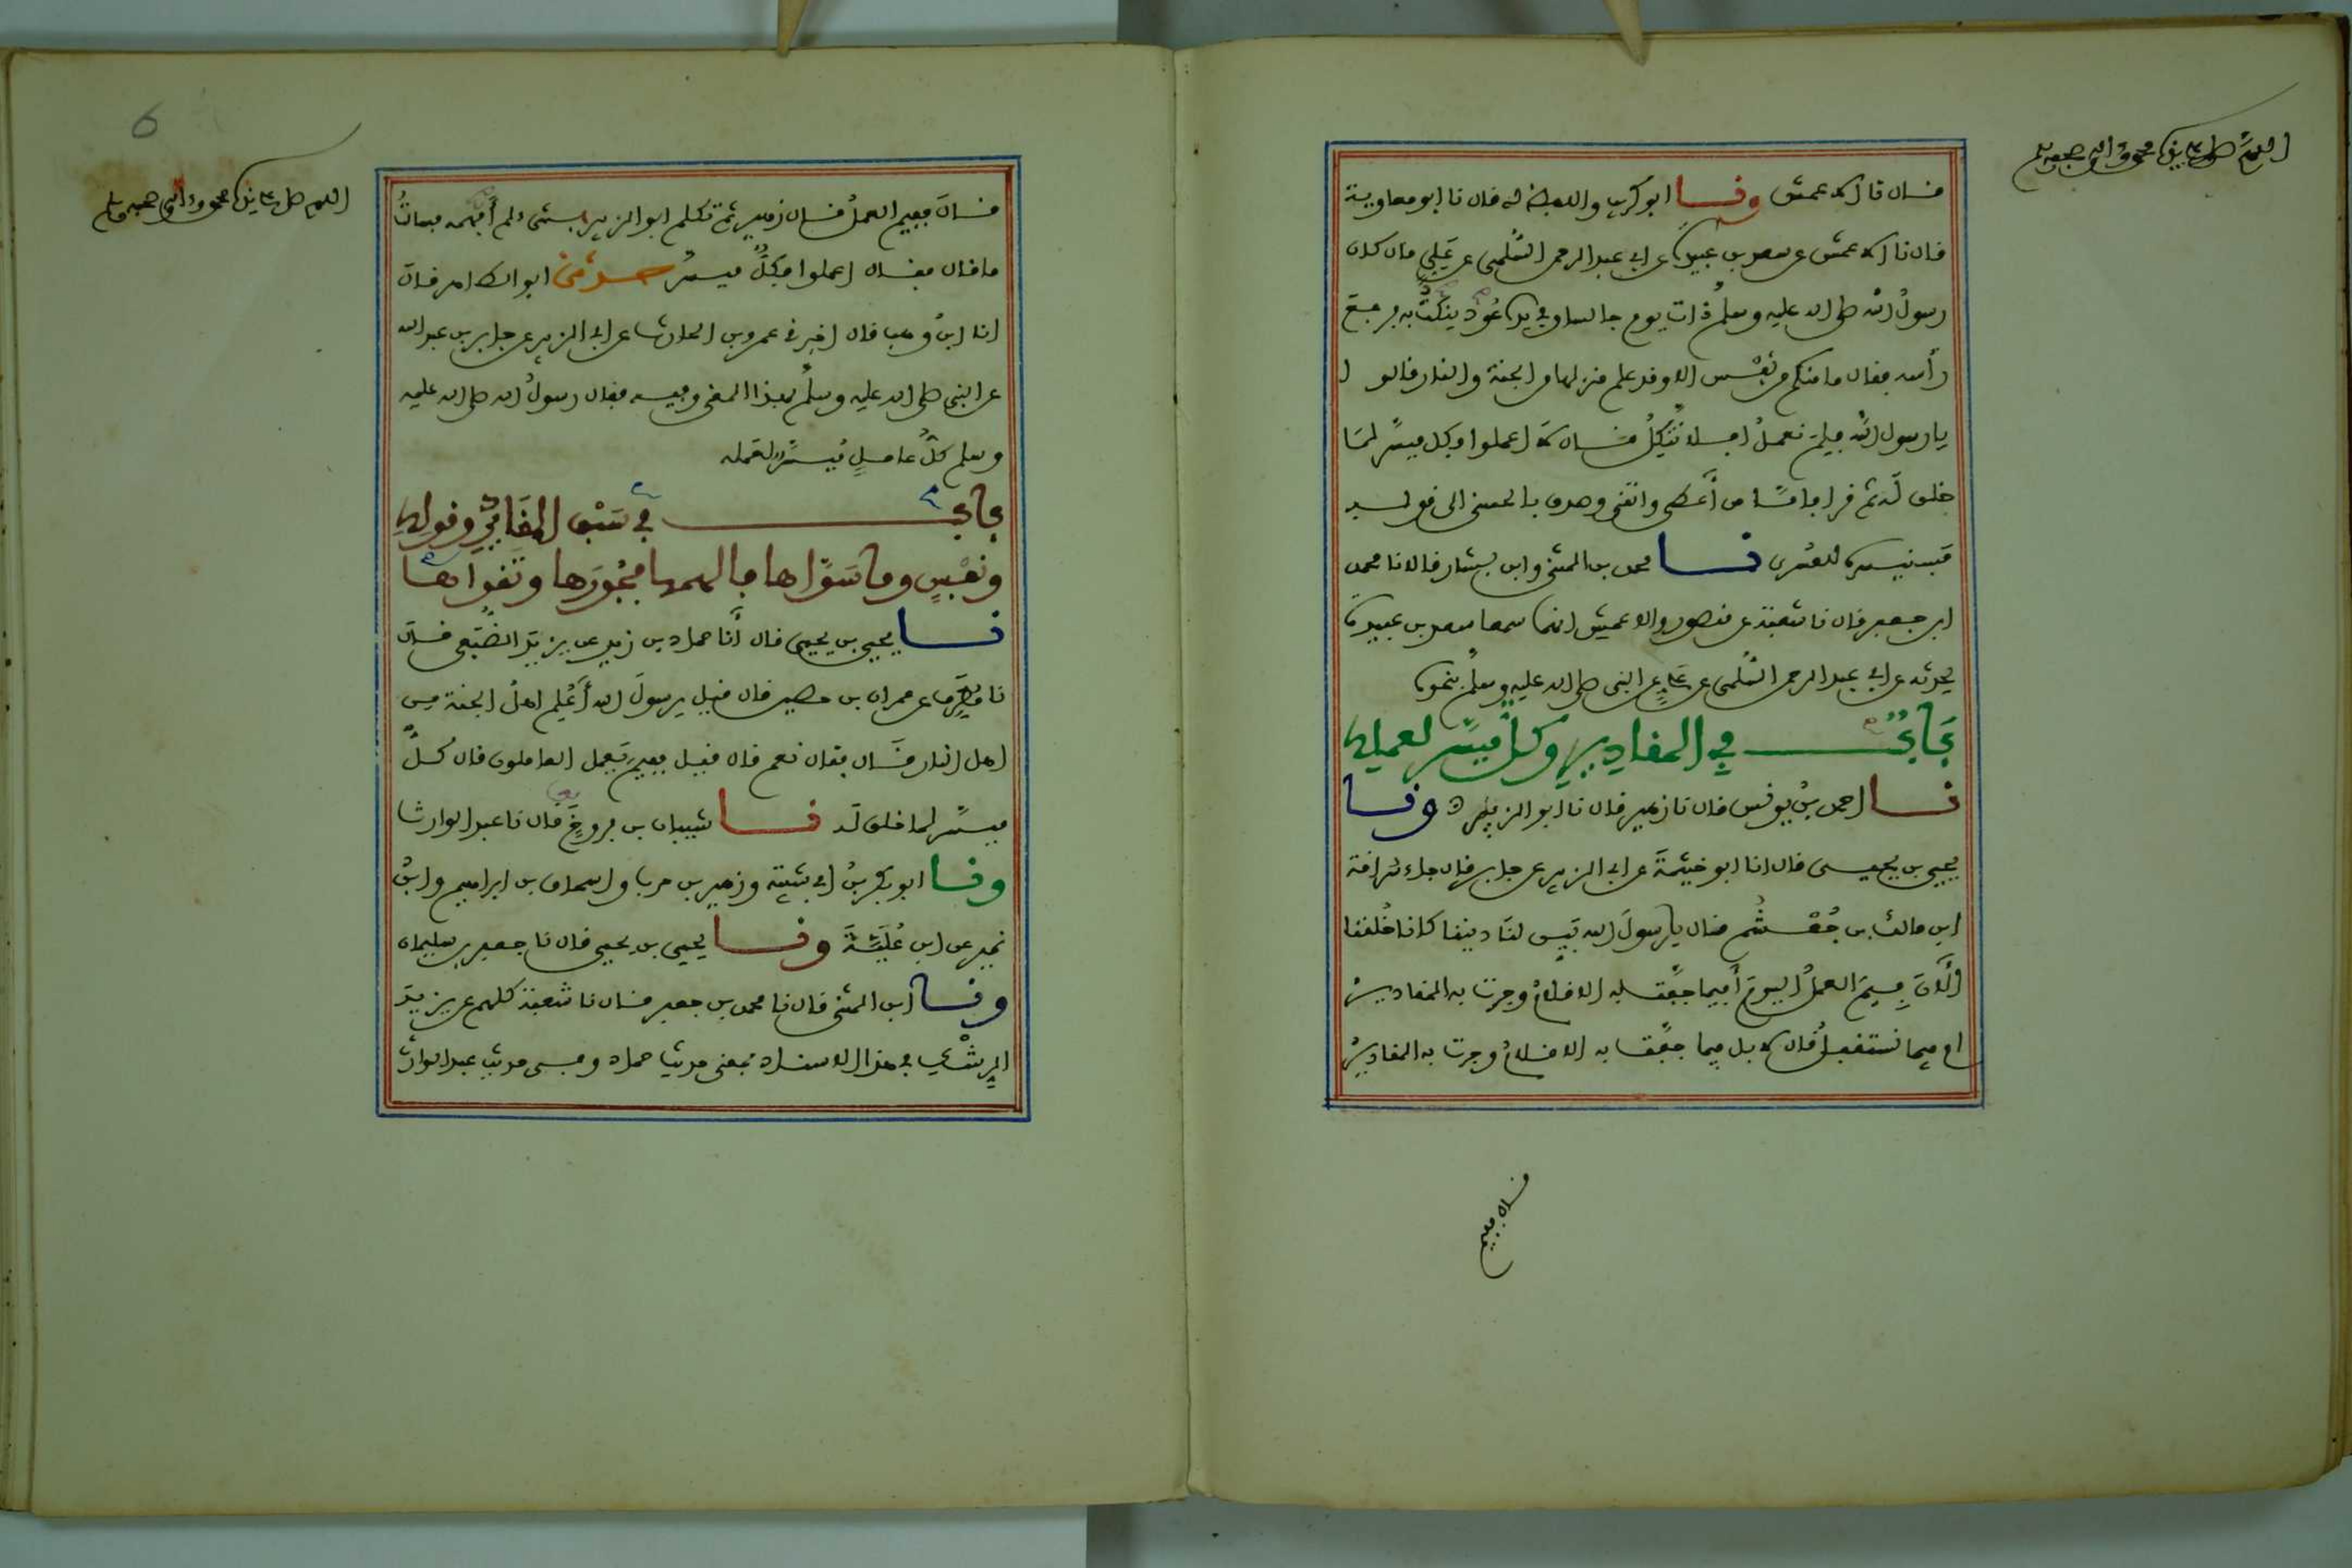 اللهم صل على سيدنا محمد وءاله وصحبه وسلم
قال نا الاعمش ونا ابو كريب واللفظ له قال نا ابو معاوية
قال نا الاعمش عن سعد بن عبيدة عن ابي عبد الرحمن السُّلمي عن علي قال كان
رسولُ الله صلى الله عليه وسلم ذات يوم جالسا وفي يده عُودٌ ينكُتُ به فرفع
رأسه فقال ما منكم من نفْس الا وقد علم منزلها من الجنة والنار قالوا
يا رسول الله فلِمَ نعملُ افلا نتَّكِلُ قال لا اعملوا فكل ميسَّر لما
خلق لَه ثم قرا فامَّا من أَعطى واتقى وصدق بالحسنى الى قوله
فسنيسره للعُسرى نا محمد بن المثنى وابن بشار قالا نا محمد
ابن جعفر قال نا شعبة عن منصور والاعمش انهما سمعا سعد بن عبيدة
يحدثه عن ابي عبد الرحمن السُّلمى عن عليٍّ عن النبي صلى الله عليه وسلم بنحوه
بَابٌ في المقادِيرِ وكلٌّ ميسَّر لعمله
نا احمد بنُ يونس قال نا زهير قال نا ابو الزبير ح ونا
يحيى بن يحيى قال انا ابو خيثمةَ عن ابي الزبير عن جابر قال جاء سُراقة
ابن مالك بن جُعْشُم فقال يا رسولَ الله بَيِّن لنَا ديننا كانا خُلقنا
الْآنَ فِيمَ العملُ اليومَ أَفيما جفَّت به الاقلامُ وجرت به المقاديرُ
ام فيما نستقبلُ قال لا بل فيما جفَّت به الاقلامُ وجرت به المقاديرُ
قال ففيم
6
اللهم صل على سيدنا محمد وءاله وصحبه وسلم
قالَ ففيم العملُ قال زهير ثم تكلم ابو الزبير بشيء لم أَفهمه فسألتُ
ما قال فقال اعملوا فكلٌّ ميسر حدثني ابو الطاهر قال
انا ابنُ وهب قال اخبرني عمرو بن الحارث عن ابي الزبير عن جابر بن عبد الله
عن النبي صلى الله عليه وسلم بهذا المعنى وفيه فقال رسولُ الله صلى الله عليه
وسلم كلُّ عاملٍ مُيسَّرٌ لعمله
باب في سَبْق المقادِيرِ وقوله
ونفْسٍ وما سَوَّاها فألهمها فجُورَها وتقواها
نا يحيى بن يحيى قال أَنا حماد بن زيد عن يزيدَ الضُّبَعي قال
نا مُطَرِّف عن عمران بن حصين قال قيل يرسولَ الله أَعُلِم اهلُ الجنة من
اهل النار قال فقال نعم قال قيل ففيمَ يَعمل العاملون قال كُلٌّ
ميسَّر لما خلق له نا شيبان بن فروخَ قال نا عبد الوارث
ونا ابو بكر بنُ ابي شيبة وزهير بن حرب واسحاق بن ابراهيم وابنُ
نمير عن ابن عُلَيَّةَ ونا يحيى بن يحيى قال نا جعفر بن سليمان
ونا ابن المثنى قال نا محمد بن جعفر قال نا شعبة كلهم عن يزيدَ
الرِشْكِ في هذا الاسناد بمعنى حديث حماد وفي حديث عبد الوارث